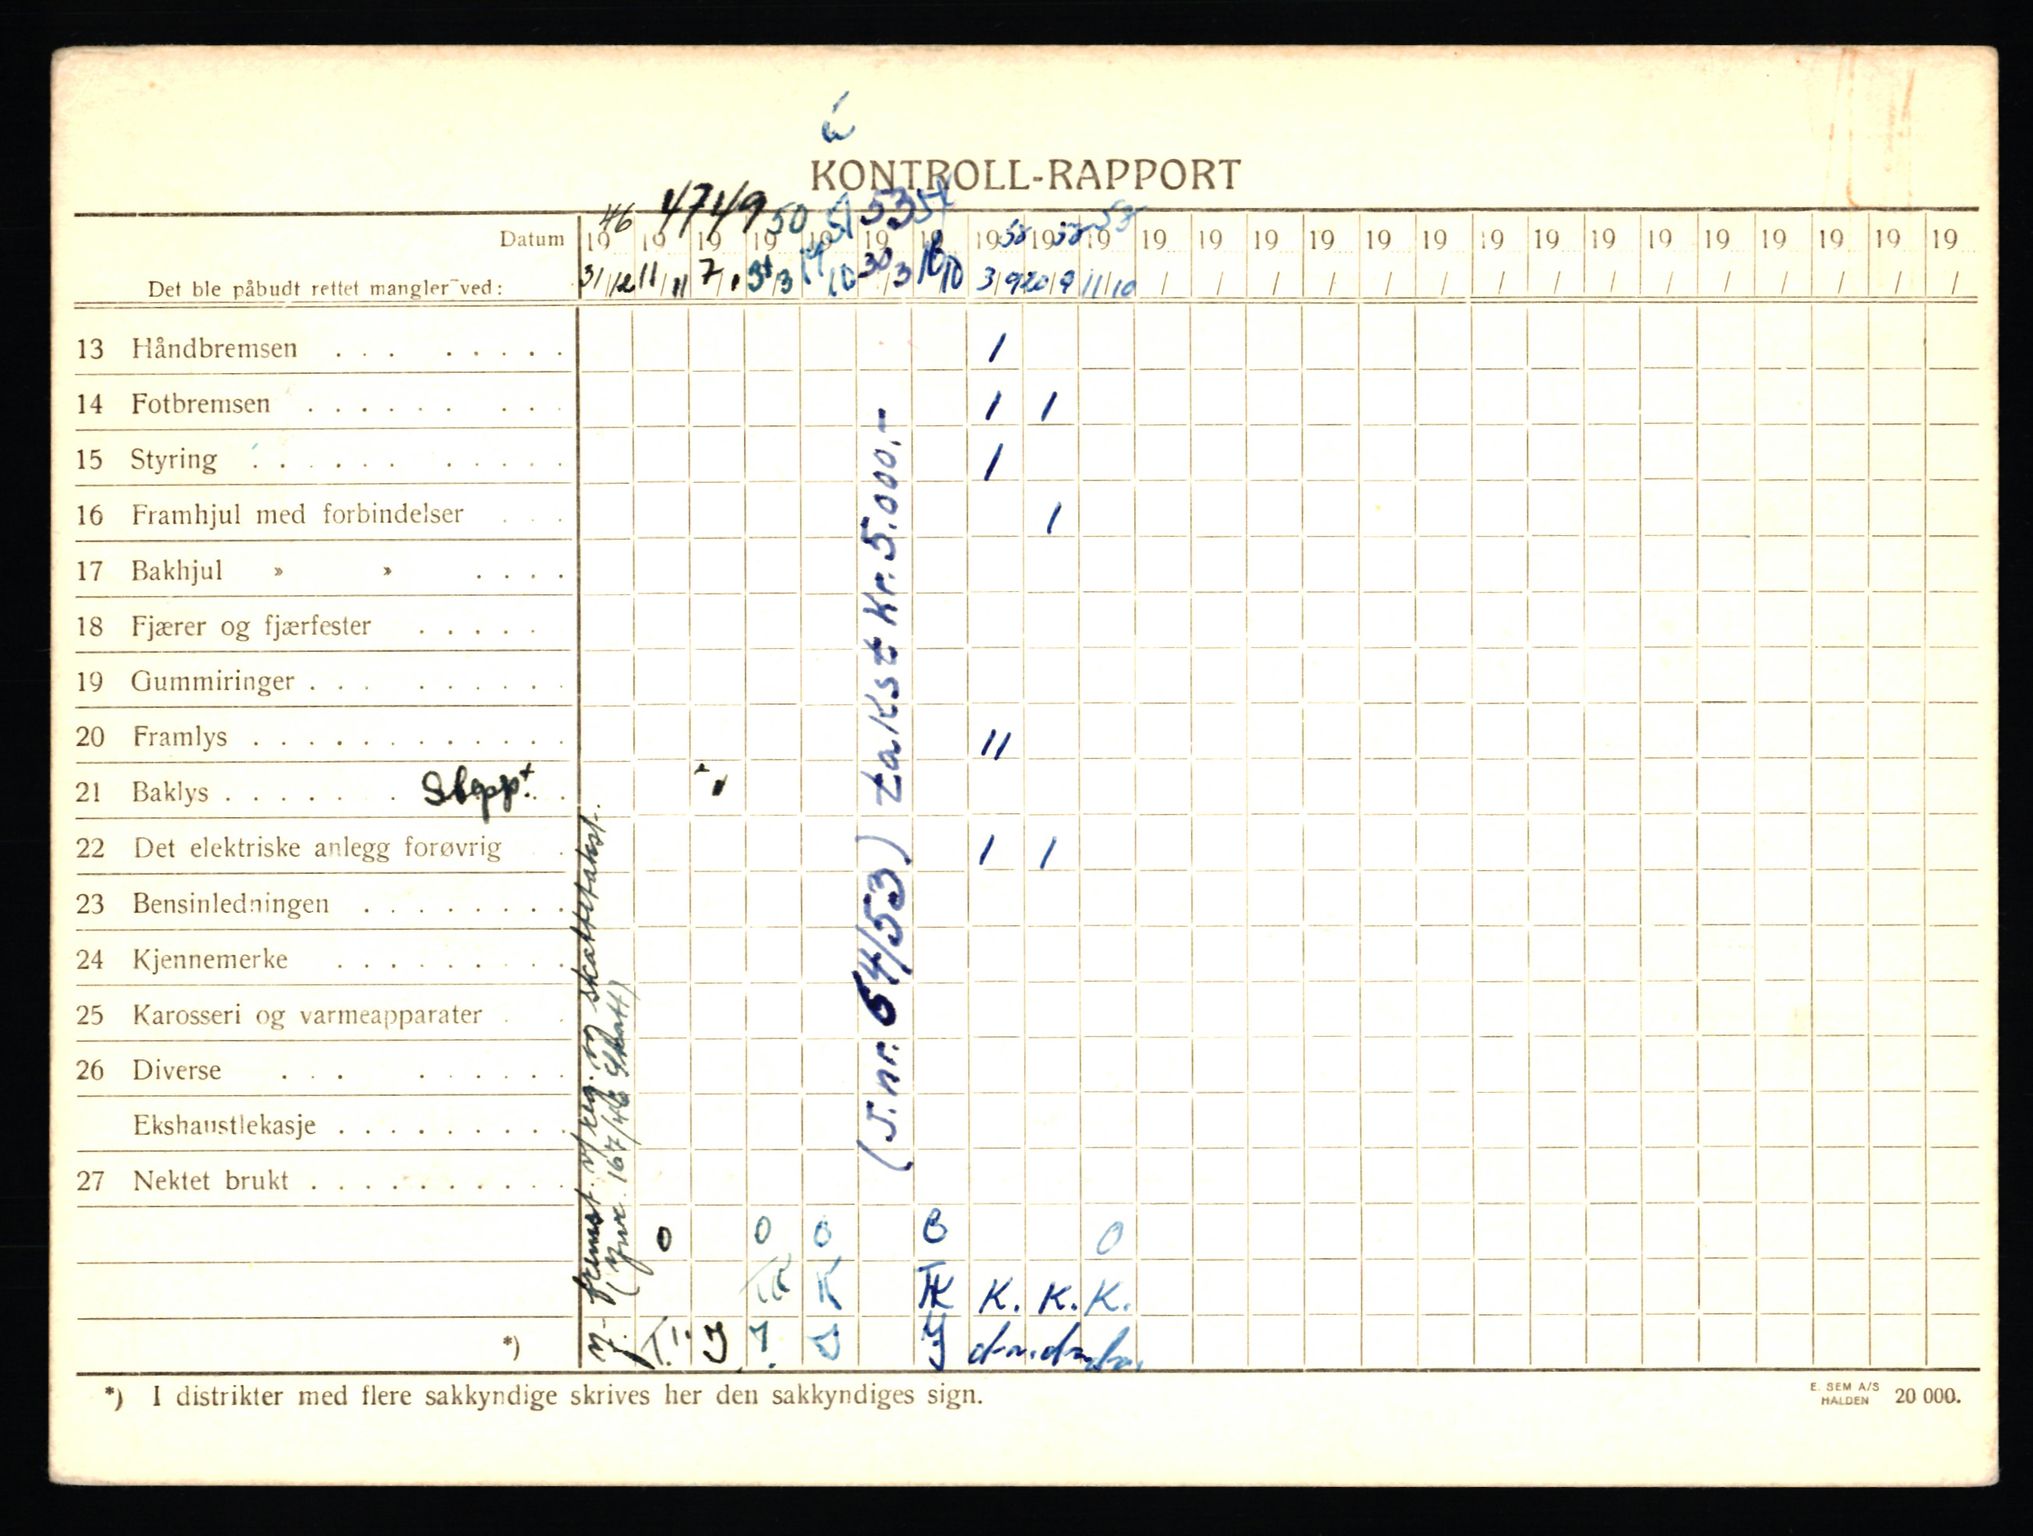 KONTROLL-RAPPORT
46 47 49 50 51 53 54
Datum 19 19 19 19 19 19 19 19 58 19 58 19 19 19 19 19 19 19 19 19 19 19 19 19 19
Det ble påbudt rettet mangler ved: 31/12 11/11 7/1 3/3 /10 30/3 18/10 3/9 20/9 11/10 / / / / / / / / / / / / / / /
13 Håndbremsen . . . . . . . . 1
14 Fotbremsen . . . . . . . . . 1 1
15 Styring . . . . . . . . . . . 1
16 Framhjul med forbindelser . . . 1
17 Bakhjul » » . . . .
18 Fjærer og fjærfester . . . . .
19 Gummiringer . . . . . . . . .
20 Framlys . . . . . . . . . . . . 11
21 Baklys . . . . . . . Stopp+
22 Det elektriske anlegg forøvrig . 1 1
23 Bensinledningen . . . . . . . .
24 Kjennemerke . . . . . . . . .
25 Karosseri og varmeapparater . .
26 Diverse . . . . . . . . .
Ekshaustlekasje . . . . . . . . .
27 Nektet brukt . . . . . . . . . .
fremst. v/reg. og skattetakst.
(Jnr. 167/46 Skatt)
(J.nr. 64/53) takst kr. 5.000.-
0 0 0 0 0
TK K TK K. K. K.
*)
*) I distrikter med flere sakkyndige skrives her den sakkyndiges sign.
E. SEM A/S
HALDEN 20 000.